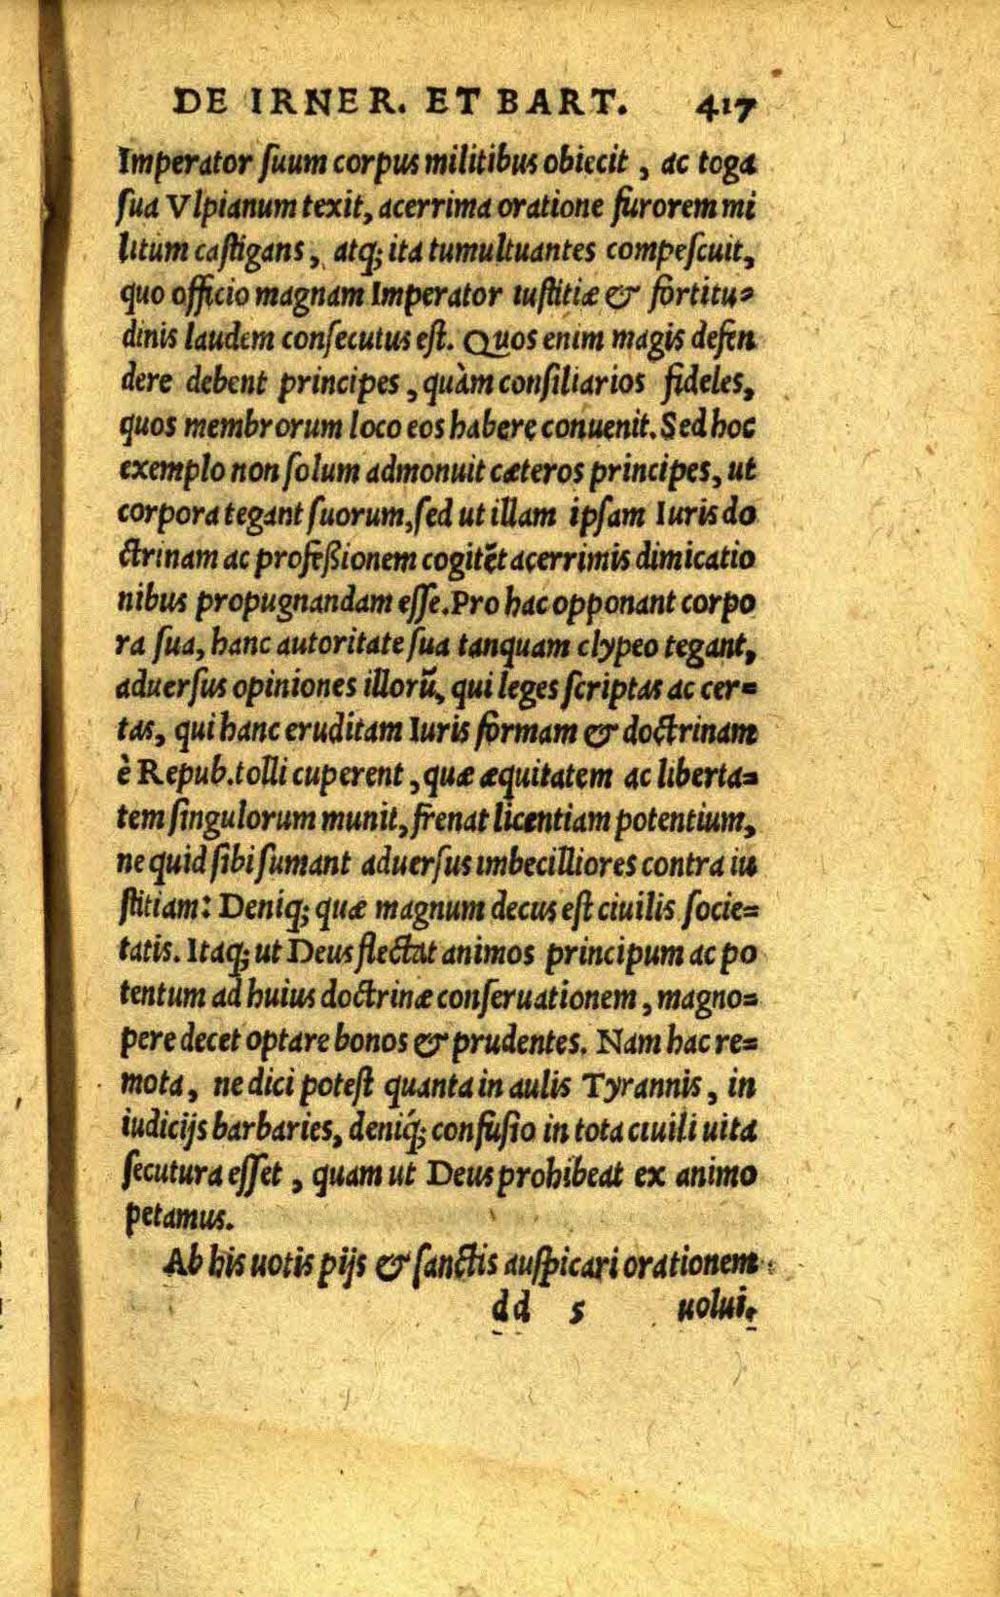 DE IRNER. ET BART. 417
Imperator ſuum corpus militibus obiecit , ac toga
ſua Vlpianum texit, acerrima oratione furorem mi
litum caſtigans , atq; ita tumultuantes compeſcuit,
quo officio magnam Imperator iuſtitiæ & fortitu=
dinis laudem conſecutus eſt. Quos enim magis defen
dere debent principes , quàm conſiliarios fideles,
quos membrorum loco eos habere conuenit. Sed hoc
exemplo non ſolum admonuit cæteros principes, ut
corpora tegant ſuorum, ſed ut illam ipſam Iuris do
ctrinam ac profeßionem cogitẽt acerrimis dimicatio
nibus propugnandam eſſe. Pro hac opponant corpo
ra ſua, hanc autoritate ſua tanquam clypeo tegant,
aduerſus opiniones illorũ, qui leges ſcriptas ac cer=
tas, qui hanc eruditam Iuris formam & doctrinam
è Repub. tolli cuperent , quæ æquitatem ac liberta=
tem ſingulorum munit, frenat licentiam potentium,
ne quid ſibi ſumant aduerſus imbecilliores contra iu
ſtitiam: Deniq; quæ magnum decus eſt ciuilis ſocie=
tatis. Itaq; ut Deus flectat animos principum ac po
tentum ad huius doctrinæ conſeruationem , magno=
pere decet optare bonos & prudentes. Nam hac re=
mota, ne dici poteſt quanta in aulis Tyrannis, in
iudicijs barbaries, deniq́; confuſio in tota ciuili uita
ſecutura eſſet , quam ut Deus prohibeat ex animo
petamus.
Ab his uotis pijs & ſanctis auſpicari orationem
dd 5 uolui,